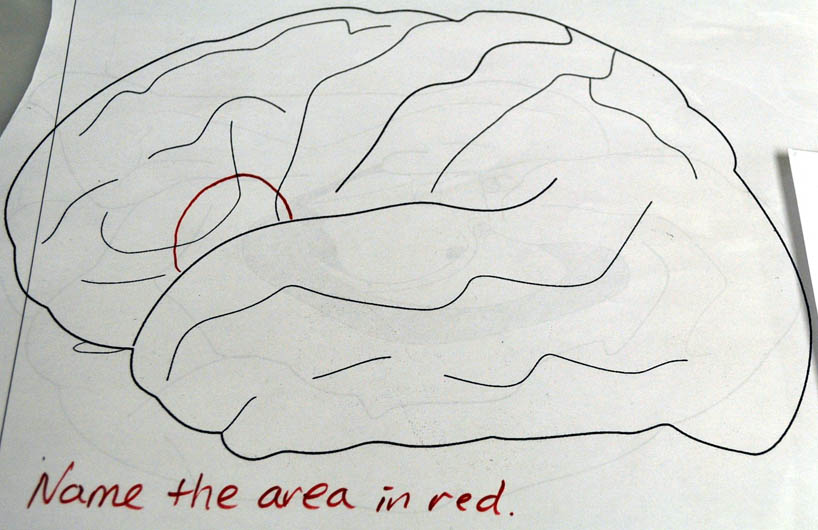 Name the area in red.